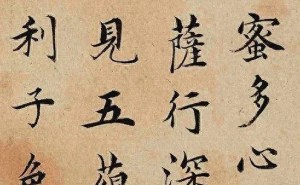 蜜多心
薩行深
見五蘊
利子色